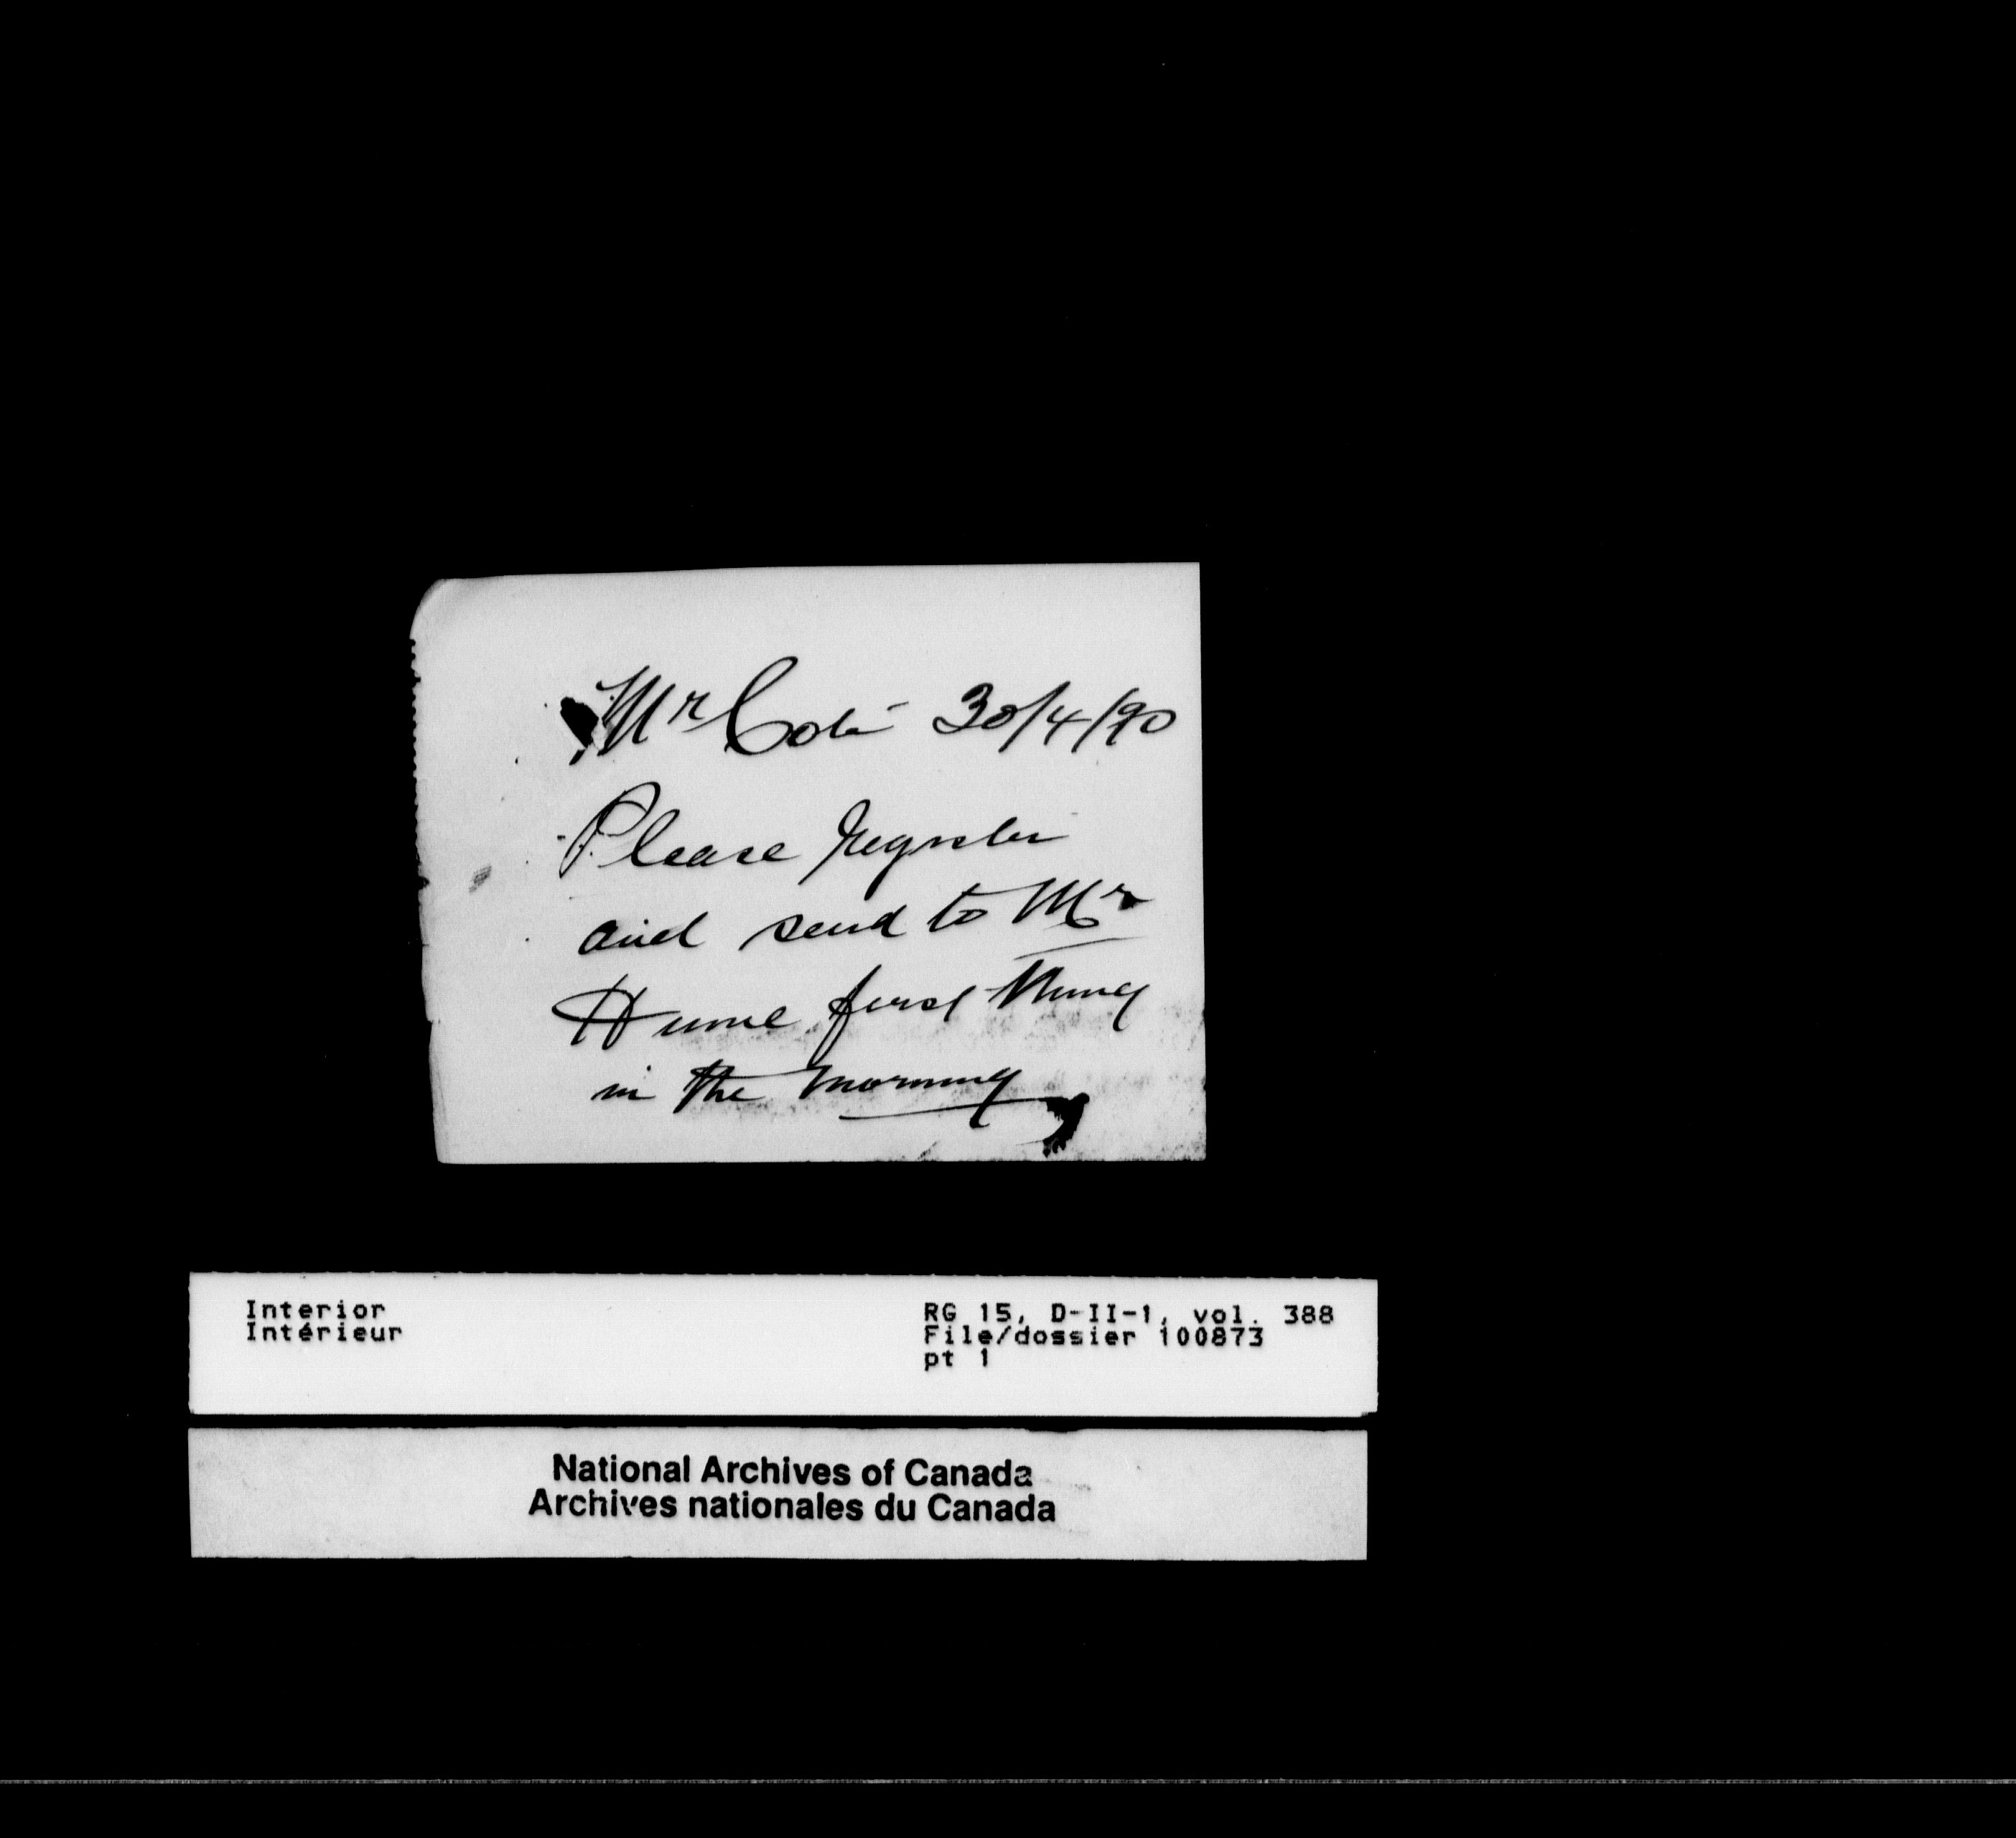 Mr Coté 30/4/90
Please register
and send to Mr
Hume first thing
in the morning
Interior
Intérieur
RG 15, D-II-1, vol. 388
File/dossier 100873
pt 1
National Archives of Canada
Archives nationales du Canada